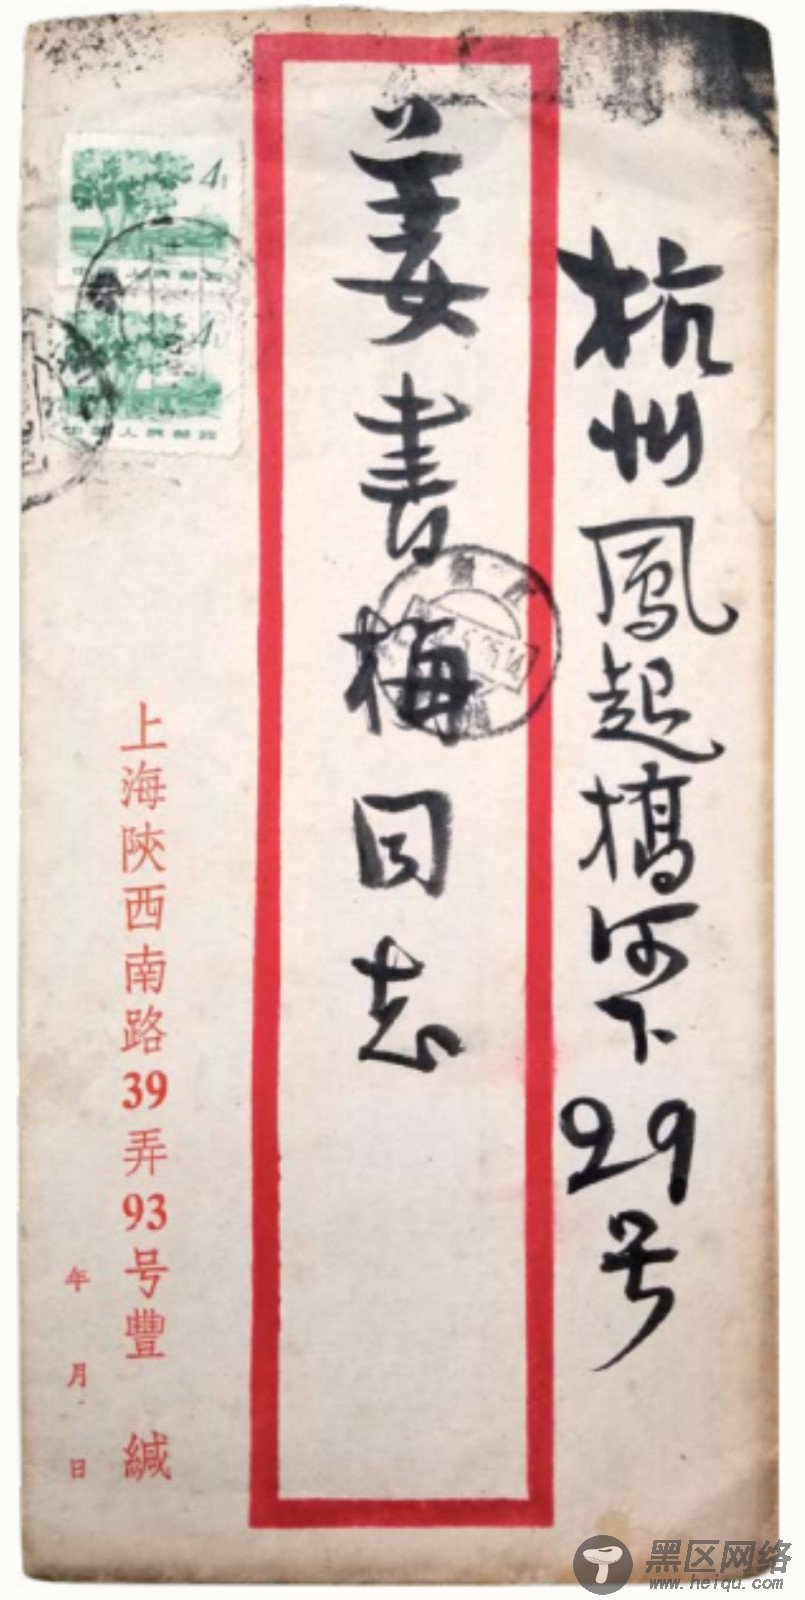 杭州鳳起橋河下29号
姜書梅同志
上海陝西南路39弄93号豐 緘
年 月 日
4
中国人民邮政
4
中国人民邮政
黑区网络
www.heiqu.com